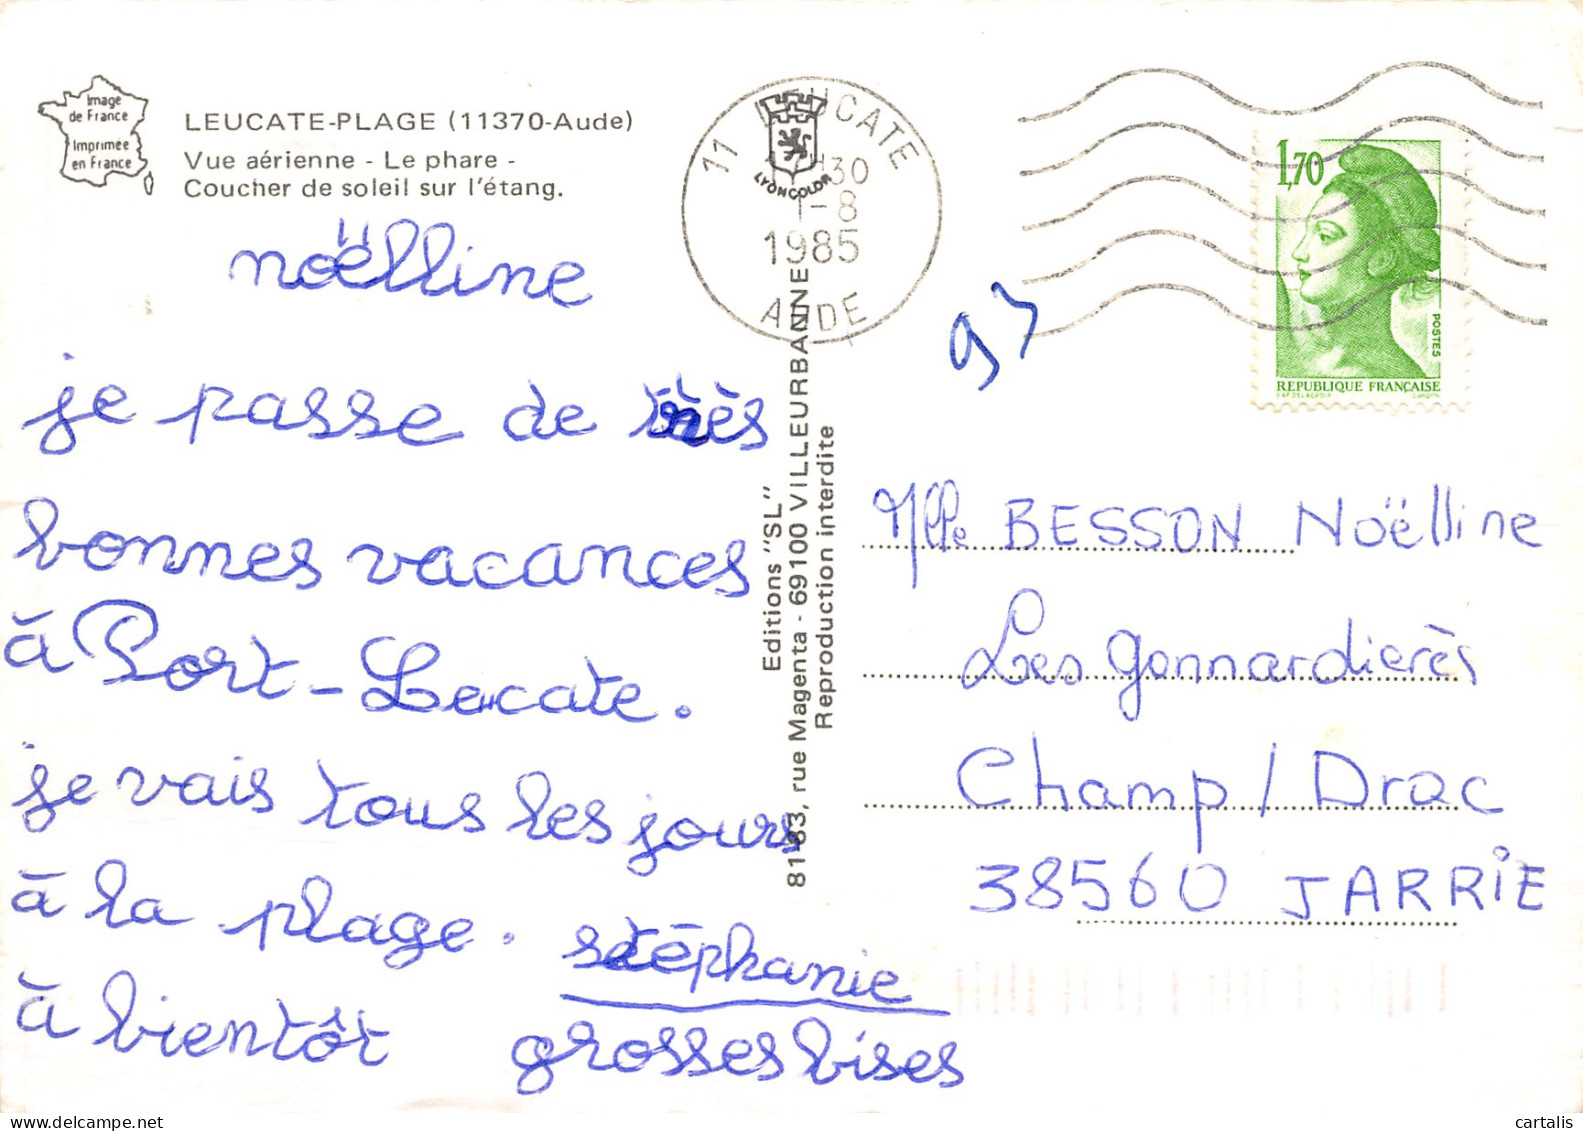 Image
de France
Imprimée
en France
LEUCATE-PLAGE (11370-Aude)
Vue aérienne - Le phare -
Coucher de soleil sur l'étang.
noëlline
je passe de très
bonnes vacances
à Port-Leucate.
je vais tous les jours
à la plage. stéphanie
à bientôt grosses bises
11 LEUCATE
H30
1-8
1985
AUDE
LYONCOLOR
Editions "SL"
81-83, rue Magenta - 69100 VILLEURBANNE
Reproduction interdite
1,70
POSTES
REPUBLIQUE FRANÇAISE
97
Mlle BESSON Noëlline
Les Gonnardierès
Champ/Drac
38560 JARRIE
cartalis